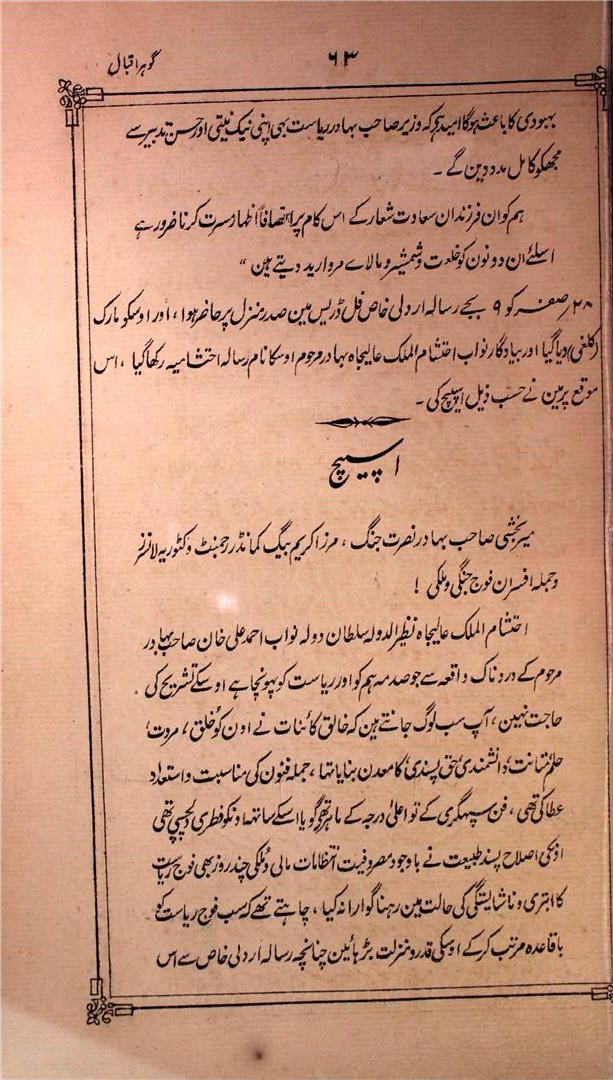 گوہر اقبال
۶۳
بہبودی کا باعث ہوگا امید ہے کہ وزیر صاحب بہادر ریاست بھی اپنی نیک نیتی اور حسن تدبیر سے
مجھکو کامل مدد دین گے ۔
ہم کو ان فرزندان سعادت شعار کے اس کام پر انصافاً اظہار مسرت کرنا ضرور ہے
اسلئے ان دونون کو خلعت و شمشیر و مالاے مروارید دیتے ہین “
۲۸ صفر کو ۹ بجے رسالہ اردلی خاص فل ڈریس مین صدر منزل پر حاضر ہوا ، اور اوسکو مارک
(کلغی) دیا گیا اور بیادگار نواب احتشام الملک عالیجاہ بہادر مرحوم اوسکا نام رسالہ احتشامیہ رکھا گیا ، اس
موقع پر مین نے حسب ذیل اسپیچ کی ۔
اسپیچ
میر بخشی صاحب بہادر نصرت جنگ ، مرزا کریم بیگ کمانڈر رجمنٹ وکٹوریہ لانسرز
و جملہ افسران فوج جنگی و ملکی !
احتشام الملک عالیجاہ نظیر الدولہ سلطان دولہ نواب احمد علی خان صاحب بہادر
مرحوم کے دردناک واقعہ سے جو صدمہ ہم کو اور ریاست کو پہونچا ہے اوسکے تشریح کی
حاجت نہین ، آپ سب لوگ جانتے ہین کہ خالق کائنات نے اون کو خلق ، مروت ،
حلم ، متانت ، دانشمندی ، حق پسندی کا معدن بنایا تھا ، جملہ فنون کی مناسبت و استعداد
عطا کی تھی ، فن سپہگری کے تو اعلیٰ درجہ کے ماہر تھے گویا اسکے ساتھ اونکو فطری دلچسپی تھی
اونکی اصلاح پسند طبیعت نے باوجود مصروفیت انتظامات مالی و ملکی چند روز بھی فوج ریاست
کا ابتری و ناشایستگی کی حالت مین رہنا گوارا نہ کیا ، چاہتے تھے کہ سب فوج ریاست کو
باقاعدہ مرتب کر کے اوسکی قدر و منزلت بڑہائین چنانچہ رسالہ اردلی خاص سے اس